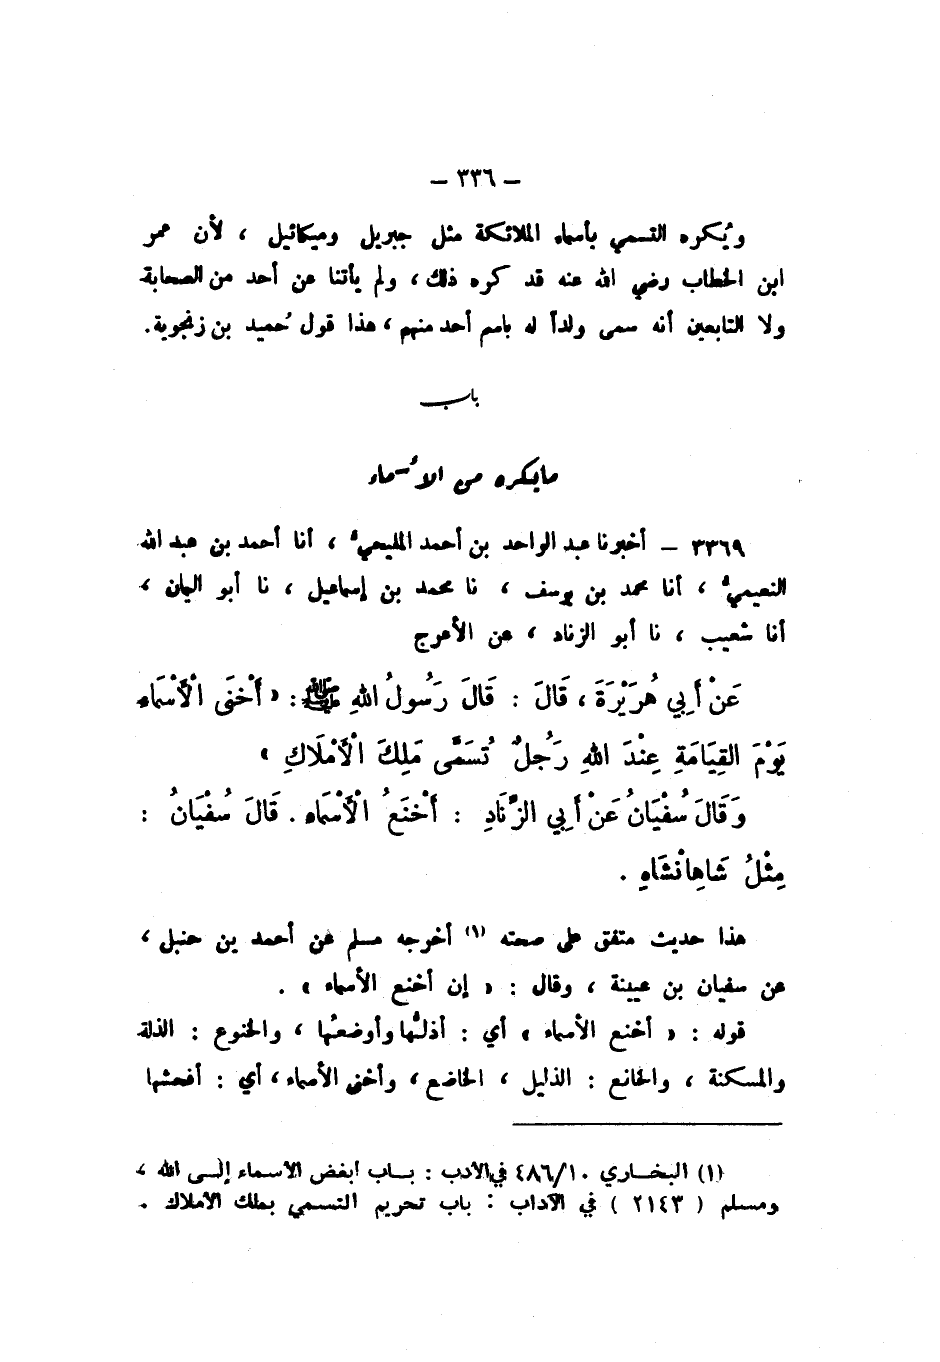 – ٣٣٦ –
ويُكره التسمي بأسماء الملائكة مثل جبريل وميكائيل ، لأن عمر
ابن الخطاب رضي الله عنه قد كره ذلك ، ولم يأتنا عن أحد من الصحابة
ولا التابعين أنه سمى ولداً له باسم أحد منهم ، هذا قول حُميد بن زنجوية .
باب
ما يكره من الأسماء
٣٣٦٩ – أخبرنا عبد الواحد بن أحمد المليحيُّ ، أنا أحمد بن عبد الله
النعيميُّ ، أنا محمد بن يوسف ، نا محمد بن إسماعيل ، نا أبو اليمان ،
أنا شعيب ، نا أبو الزناد ، عن الأعرج
عَنْ أَبِي هُرَيْرَةَ ، قَالَ : قَالَ رَسُولُ اللهِ ﷺ : « أَخْنَى الْأَسْمَاءِ
يَوْمَ القِيَامَةِ عِنْدَ اللهِ رَجُلٌ تُسَمَّى مَلِكَ الْأَمْلَاكِ »
وَقَالَ سُفْيَانُ عَنْ أَبِي الزِّنَادِ : أَخْنَعُ الْأَسْمَاءِ . قَالَ سُفْيَانُ :
مِثْلُ شَاهِانْشَاهِ .
هذا حديث متفق على صحته (١) أخرجه مسلم عن أحمد بن حنبل ،
عن سفيان بن عيينة ، وقال : « إن أخنع الأسماء » .
قوله : « أخنع الأسماء » أي : أذلُّها وأوضعُها ، والخنوع : الذلة
والمسكنة ، والخانع : الذليل ، الخاضع ، وأخنى الأسماء ، أي : أفحشها
(١) البخاري ٤٨٦/١٠ في الأدب : باب أبغض الأسماء إلى الله ،
ومسلم ( ٢١٤٣ ) في الآداب : باب تحريم التسمي بملك الأملاك .